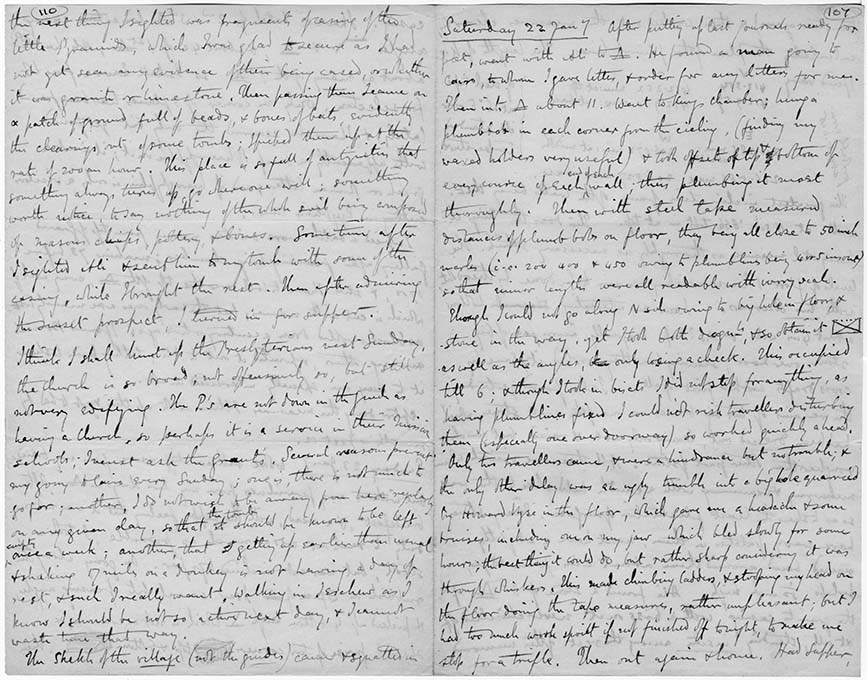 110
the next thing I sighted was fragments of casing of the
little Pyramids, which I was glad to secure as I had
not yet seen any evidence of their being cased, or whether
it was granite or limestone. Then passing them I came on
a patch of ground full of beads, & bones of bats, evidently
the clearings out of some tombs; I picked them up at the
rate of 200 an hour. This place is so full of antiquities that
something always turns up go where one will; something
worth notice, to say nothing of the whole soil being composed
of masons chips, pottery, & bones. Sometime after
I sighted Ali & sent him to my tomb with some of the
casing, while I brought the rest. Then after admiring
the sunset prospect, turned in for supper.
I think I shall hunt up the Presbyterians next Sunday,
the church is so broad; not offensively so, but still
not very edifying. The P's are not down in the guide as
having a Church, so perhaps it is a service in their Mission
schools; I must ask the Grants. Several reasons prevent
my going to Cairo every Sunday; one, there is not much to
go for; another, I do not wish to be away from here regularly
on any given day, so that the tomb should be known to be left
empty once a week; another, that getting up earlier than usual
& shaking 17 miles on a donkey is not having a day of
rest, & such I really want, walking in I eschew as I
know I should be not so active next day, & I cannot
waste time that way.
The Sheikh of the village (not the guides) came & squatted in
107
Saturday 22 Jany After putting up last journals ready for
post, went with Ali to Δ. He found a man going to
Cairo, to whom I gave letter, & order for any letters for me.
Then into Δ about 11. Went to King's chamber; hung a
plumb bob in each corner from the ceiling, (finding my
waxed holders very useful) & took offsets of top & bottom of
every course of each end of each wall, thus plumbing it most
thoroughly. Then with steel tape measured
distances of plumb bobs on floor, they being all close to 50 inch
marks (i.e. 200 400 & 450 owing to plumb lines being 4 or 5 in out)
so that minor lengths were all readable with ivory scale.
Though I could not go along N side owing to big hole in floor, &
stone in the way, yet I took both diagonls, & so obtain it
as well as the angles, only losing a check. This occupied
till 6, & though I took in biscts I did not stop for anything, as
having plumb lines fixed I could not risk travellers disturbing
them (especially one over doorway) so worked quickly ahead.
Only two travellers came, & were a hindrance but no trouble; &
the only other delay was an ugly tumble into a big hole quarried
by Howard Vyse in the floor, which gave me a headache & some
bruises, including one on my jaw, which bled slowly for some
hours: the best thing it could do, but rather sharp considering it was
through whiskers. This made climbing ladders, & stooping my head on
the floor doing the tape measures, rather unpleasant; but I
had too much work spoilt if not finished off tonight, to make me
stop for a trifle. Then out again & home. Had supper,